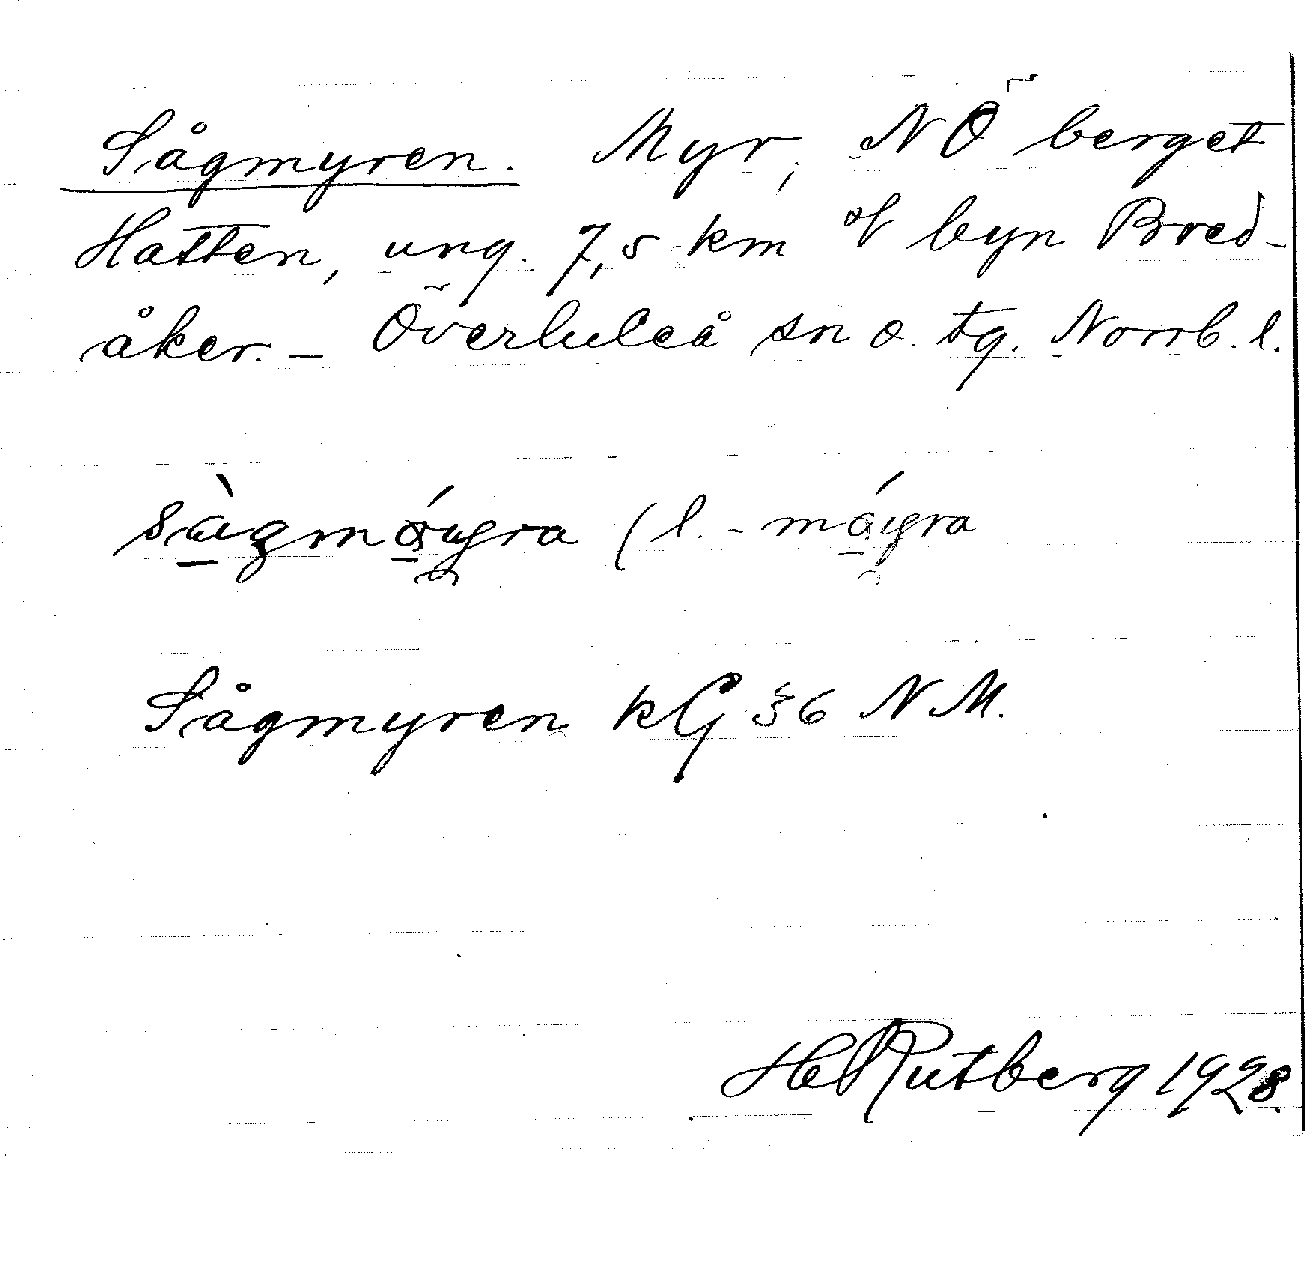 Sågmyren. Myr, NÖ berget
Hatten, ung. 7,5 km of byn Bred-
åker. — Överluleå sn o. tg. Norrb. l.
sàgmóyra (l. - móyra
Sågmyren kG §6 N M.
HRutberg 1928.